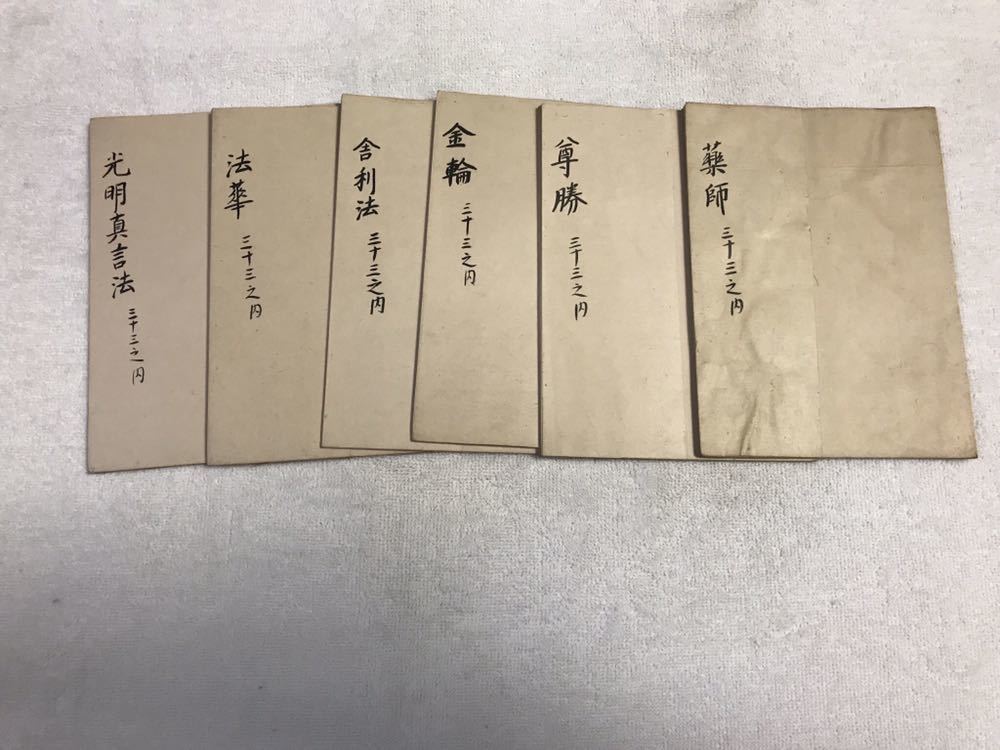 薬師 三十三之内
尊勝 三十三之内
金輪 三十三之内
舎利法 三十三之内
法華 三十三之内
光明真言法 三十三之内